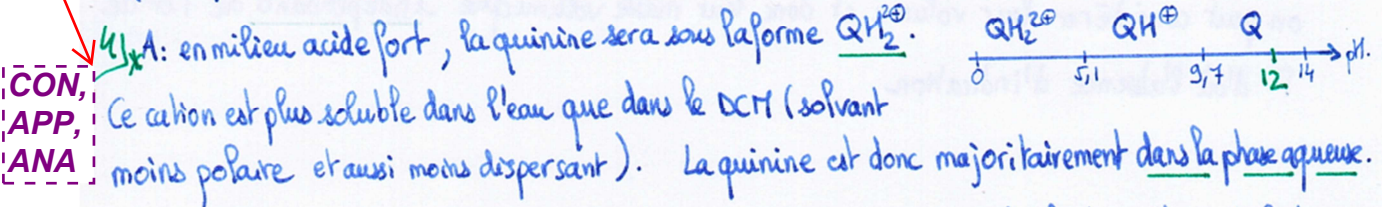 4) * A: en milieu acide fort, la quinine sera sous la forme QH₂²⊕.
QH₂²⊕ QH⊕ Q
0 5,1 9,7 12 14 pH.
CON,
APP,
ANA
Ce cation est plus soluble dans l'eau que dans le DCM (solvant
moins polaire et aussi moins dispersant). La quinine est donc majoritairement dans la phase aqueuse.